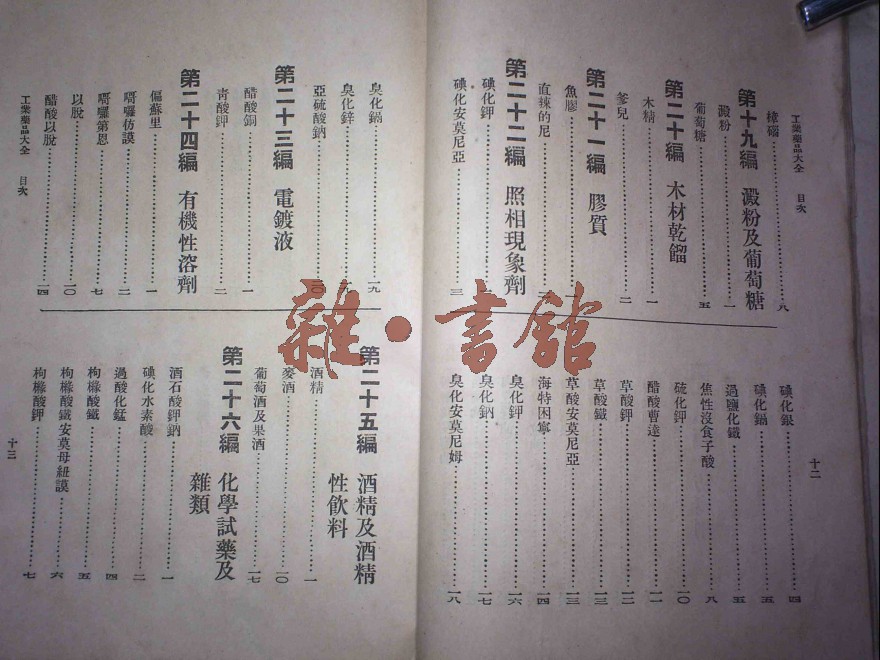 工業藥品大全 目次
樟腦……八
第十九編 澱粉及葡萄糖
澱粉……一
葡萄糖……五
第二十編 木材乾餾
木精……一
爹兒……二
第二十一編 膠質
魚膠……
直辣的尼……二
第二十二編 照相現象劑
碘化鉀……
碘化安莫尼亞……三
碘化銀……四
碘化鎘……五
過鹽化鐵……五
焦性沒食子酸……八
硫化鉀……一〇
醋酸曹達……一一
草酸鉀……一二
草酸鐵……一三
草酸安莫尼亞……一三
海特困寧……一四
臭化鉀……一六
臭化鈉……一七
臭化安莫尼姆……一八
十二
臭化鎘……一九
臭化鋅……一九
亞硫酸鈉……二〇
第二十三編 電鍍液
醋酸銅……一
青酸鉀……二
第二十四編 有機性溶劑
偏蘇里……一
嗬囉仿謨……二
嗬囉第恩……七
以脫……一〇
醋酸以脫……一四
第二十五編 酒精及酒精性飲料
酒精……一
麥酒……一〇
葡萄酒及果酒……一七
第二十六編 化學試藥及雜類
酒石酸鉀鈉……一
碘化水素酸……二
過酸化錳……四
枸櫞酸鐵……五
枸櫞酸鐵安莫母紐謨……六
枸櫞酸鉀……七
工業藥品大全 目次
十三
雜·書館